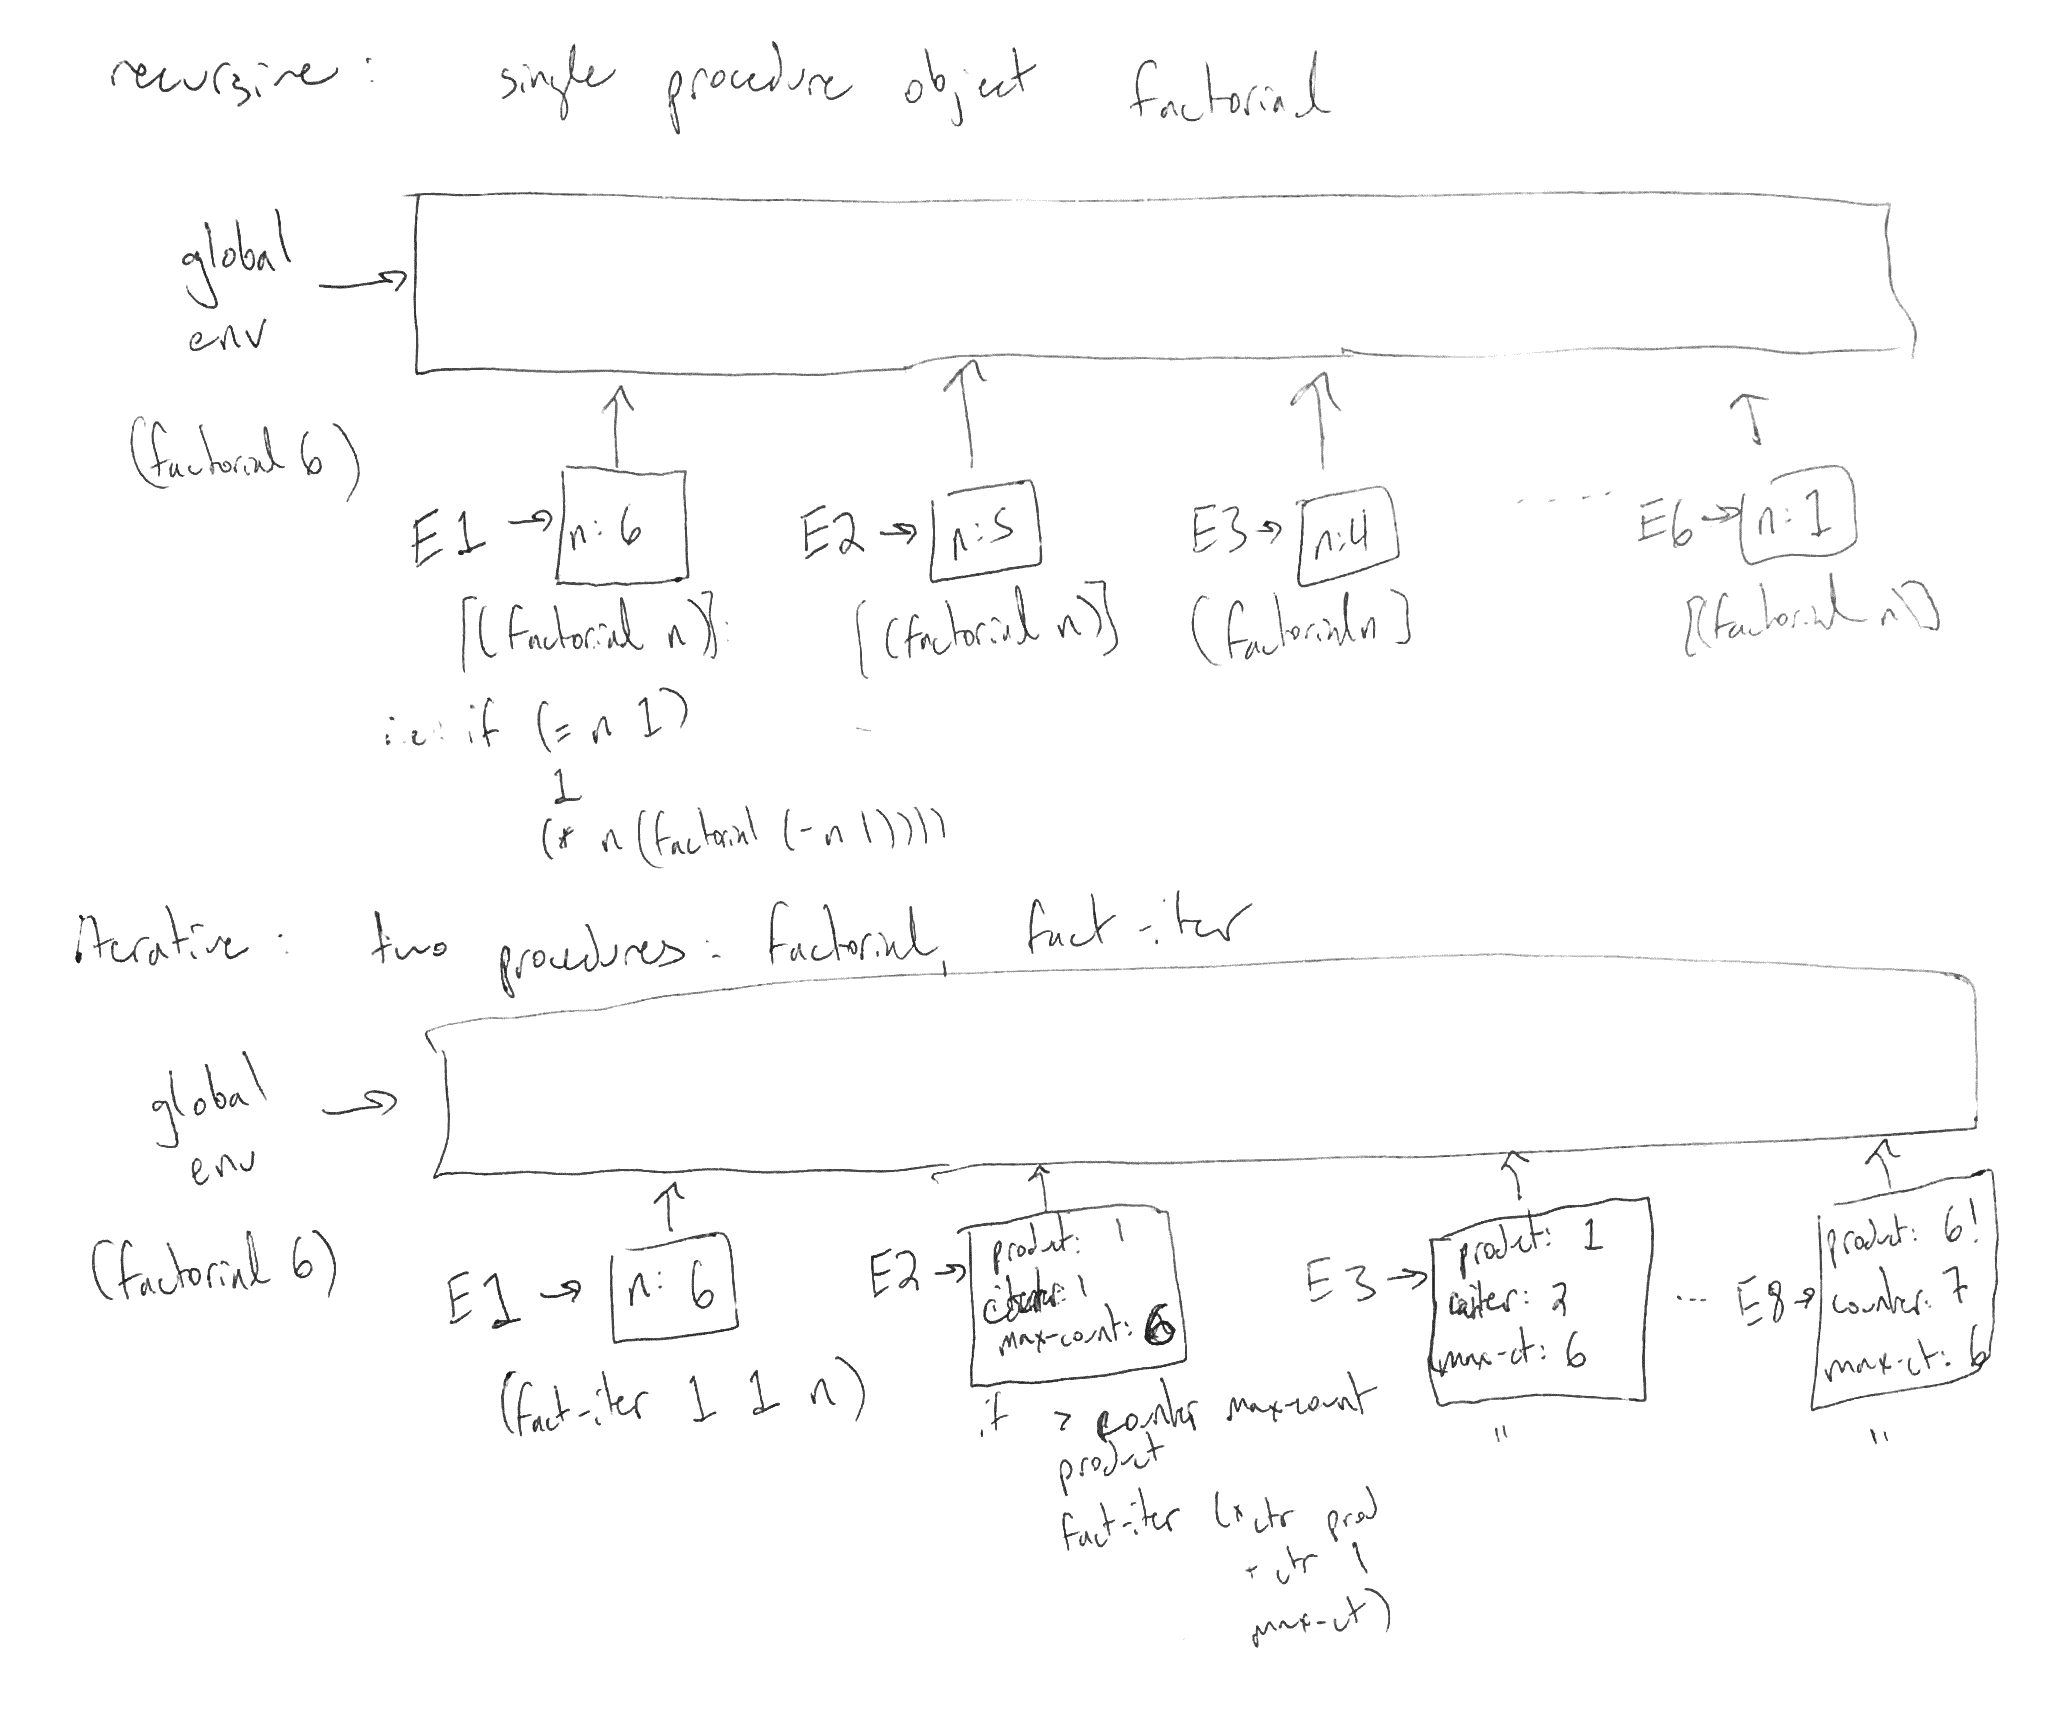 recursive: single procedure object factorial
global
env
(factorial 6)
E1 → n: 6
E2 → n: 5
E3 → n: 4
.....
E6 → n: 1
[(factorial n)]
[(factorial n)]
(factorial n]
[(factorial n)]
i.e. if (= n 1)
1
(* n (factorial (- n 1))))
Iterative: two procedures: factorial, fact-iter
global
env
(factorial 6)
E1 → n: 6
(fact-iter 1 1 n)
E2 → product: 1
counter: 1
max-count: 6
if > counter max-count
product
fact-iter (* ctr prod
+ ctr 1
max-ct)
E3 → product: 1
counter: 2
max-ct: 6
"
... E8 → product: 6!
counter: 7
max-ct: 6
"